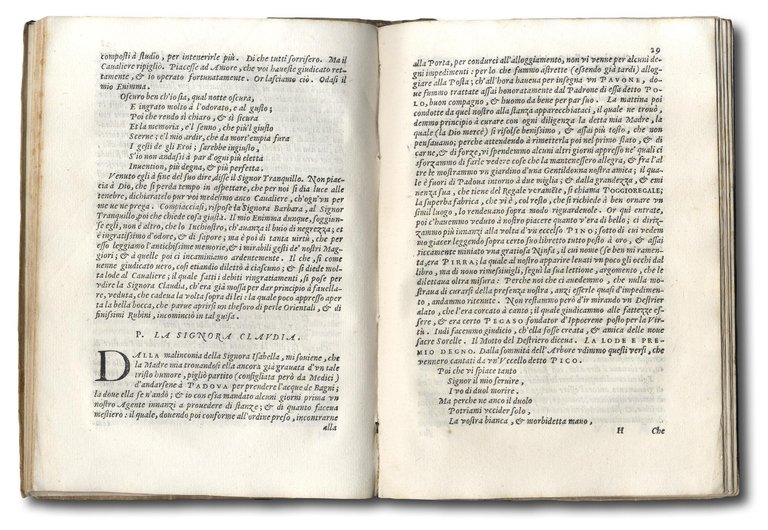 composti à studio, per intenerirle più. Di che tutti sorrisero. Ma il
Caualiere ripigliò. Piacesse ad Amore, che voi haueste giudicato ret-
tamente, & io operato fortunatamente. Or lasciamo ciò. Odasi il
mio Enimma.
Oscuro ben ch'io sia, qual notte oscura,
E ingrato molto à l'odorato, e al gusto;
Poi che rendo sì chiaro, & sì sicura
Et la memoria, e'l senno, che più'l giusto
Scerne; e'l mio ardir, che da mort'empia fura
I gesti de gli Eroi; sarebbe ingiusto,
S'io non andasi à par d'ogni più eletta
Inuention, più degna, & più perfetta.
Venuto egli à fine del suo dire disse il Signor Tranquillo. Non piac-
cia à Dio, che si perda tempo in aspettare, che per noi si dia luce alle
tenebre, dichiaratelo pur voi medesimo anco Caualiere, ch'ogn'vn per
me ue ne prega. Compiacciasi, rispose la Signora Barbara, al Signor
Tranquillo, poi che chiede cosa giusta. Il mio Enimma dunque, soggiun-
se egli, non è altro, che lo Inchiostro, ch'auanza il buio di negrezza; et
è ingratissimo d'odore, & di sapore; ma è poi di tanta uirtù, che per
esso leggiamo l'antichissime memorie, & i mirabili gesti de' nostri Mag-
giori; & à quelle poi ci incaminiamo ardentemente. Il che, sì come
nenne giudicato uero, così etiandio dilettò à ciascuno; & si diede mol-
ta lode al Caualiere; il quale fatti i debiti ringratiamenti, si pose per
vdire la Signora Claudia, ch'era già mossa per dar principio à fauella-
re, veduta, che cadeua la volta sopra di lei: la quale poco appresso aper-
ta la bella bocca, che parue aprirsi un thesoro di perle Orientali, & di
finissimi Rubini, incominciò in tal guisa.
P. LA SIGNORA CLAVDIA.
DALLA malinconia della Signora Isabella, mi souiene, che
la Madre mia trouandosi ella ancora già grauata d'vn tale
tristo humore, pigliò partito (consigliata però da Medici)
d'andarsene à PADOVA per prendere l'acque de Bagni;
là doue ella se n'andò; & io con essa mandato alcuni giorni prima vn
nostro Agente innanzi a prouedere di stanze; & di quanto facena
mestiero: il quale, douendo poi conforme all'ordine preso, incontrarne
alla
29
alla Porta, per condurci all'alloggiamento, non vi venne per alcuni de-
gni impedimenti: per lo che fummo astrette (essendo già tardi) allog-
giare alla Posta; ch'all'hora haueua per Insegna vn PAVONE, do-
ue fummo trattate assai honoratamente dal Padrone di essa detto PO-
LO, buon compagno, & huomo da bene per par suo. La mattina poi
condotte da quel nostro alla stanza apparecchiataci, il quale ne trouò,
demmo principio à curare con ogni diligenza la detta mia Madre, la
quale (la Dio mercè) si risolse benissimo, & assai più tosto, che non
pensauamo; perche attendendo à rimetterla poi nel primo stato, & di
carne, & di forze, vi spendemmo alcuni altri giorni appresso ne' quali ci
sforzammo di farle vedere cose che la mantenessero allegra, & fra l'al
tre le mostrammo vn giardino d'una Gentildonna nostra amica; il qua-
le è fuori di Padoua intorno à due miglia; & dalla grandezza, & emi-
nenza sua, che tiene del Regale veramẽte, si chiama POGGIOREGALE;
la superba fabrica, che vi è, col resto, che si richiede à ben ornare vn
simil luogo, lo rendeuano sopra modo riguardeuole. Or quì entrate,
poi c'hauemmo veduto à nostro piacere quanto v'era di bello; ci diriz-
zammo più innanzi alla volta d'vn eccelso PINO; sotto di cui vedem
mo giacer leggendo sopra certo suo libretto tutto posto à oro, & assai
riccamente miniato vna gratiosa Ninfa, il cui nome (se ben mi ramen-
ta, era PIRRA; la quale al nostro apparire leuati vn poco gli occhi dal
libro, ma di nuouo rimessiuigli, seguì la sua lettione, argomento, che le
dilettaua oltra misura: Perche noi che ci auedemmo, che nulla mo-
straua di curarsi della presenza nostra, anzi esserle quasi d'impedimen-
to, andammo ritenute. Non restammo però d'ir mirando vn Destrier
alato, che l'era corcato à canto; il quale giudicammo alle fattezze esse-
re, & era certo PEGASO fondator d'Ippocrene posto per la Vir-
tù. Indi facemmo giudicio, ch'ella fosse creata, & amica delle noue
sacre Sorelle. Il Motto del Destriero diceua. LA LODE E PRE-
MIO DEGNO. Dalla sommità dell'Arbore vdimmo questi versi, che
vennero cantati da vn'Vccello detto PICO.
Poi che vi spiace tanto
Signor il mio seruire,
I vo di duol morire.
Ma perche ne anco il duolo
Potriami vccider solo,
La vostra bianca, & morbidetta mano,
H Che